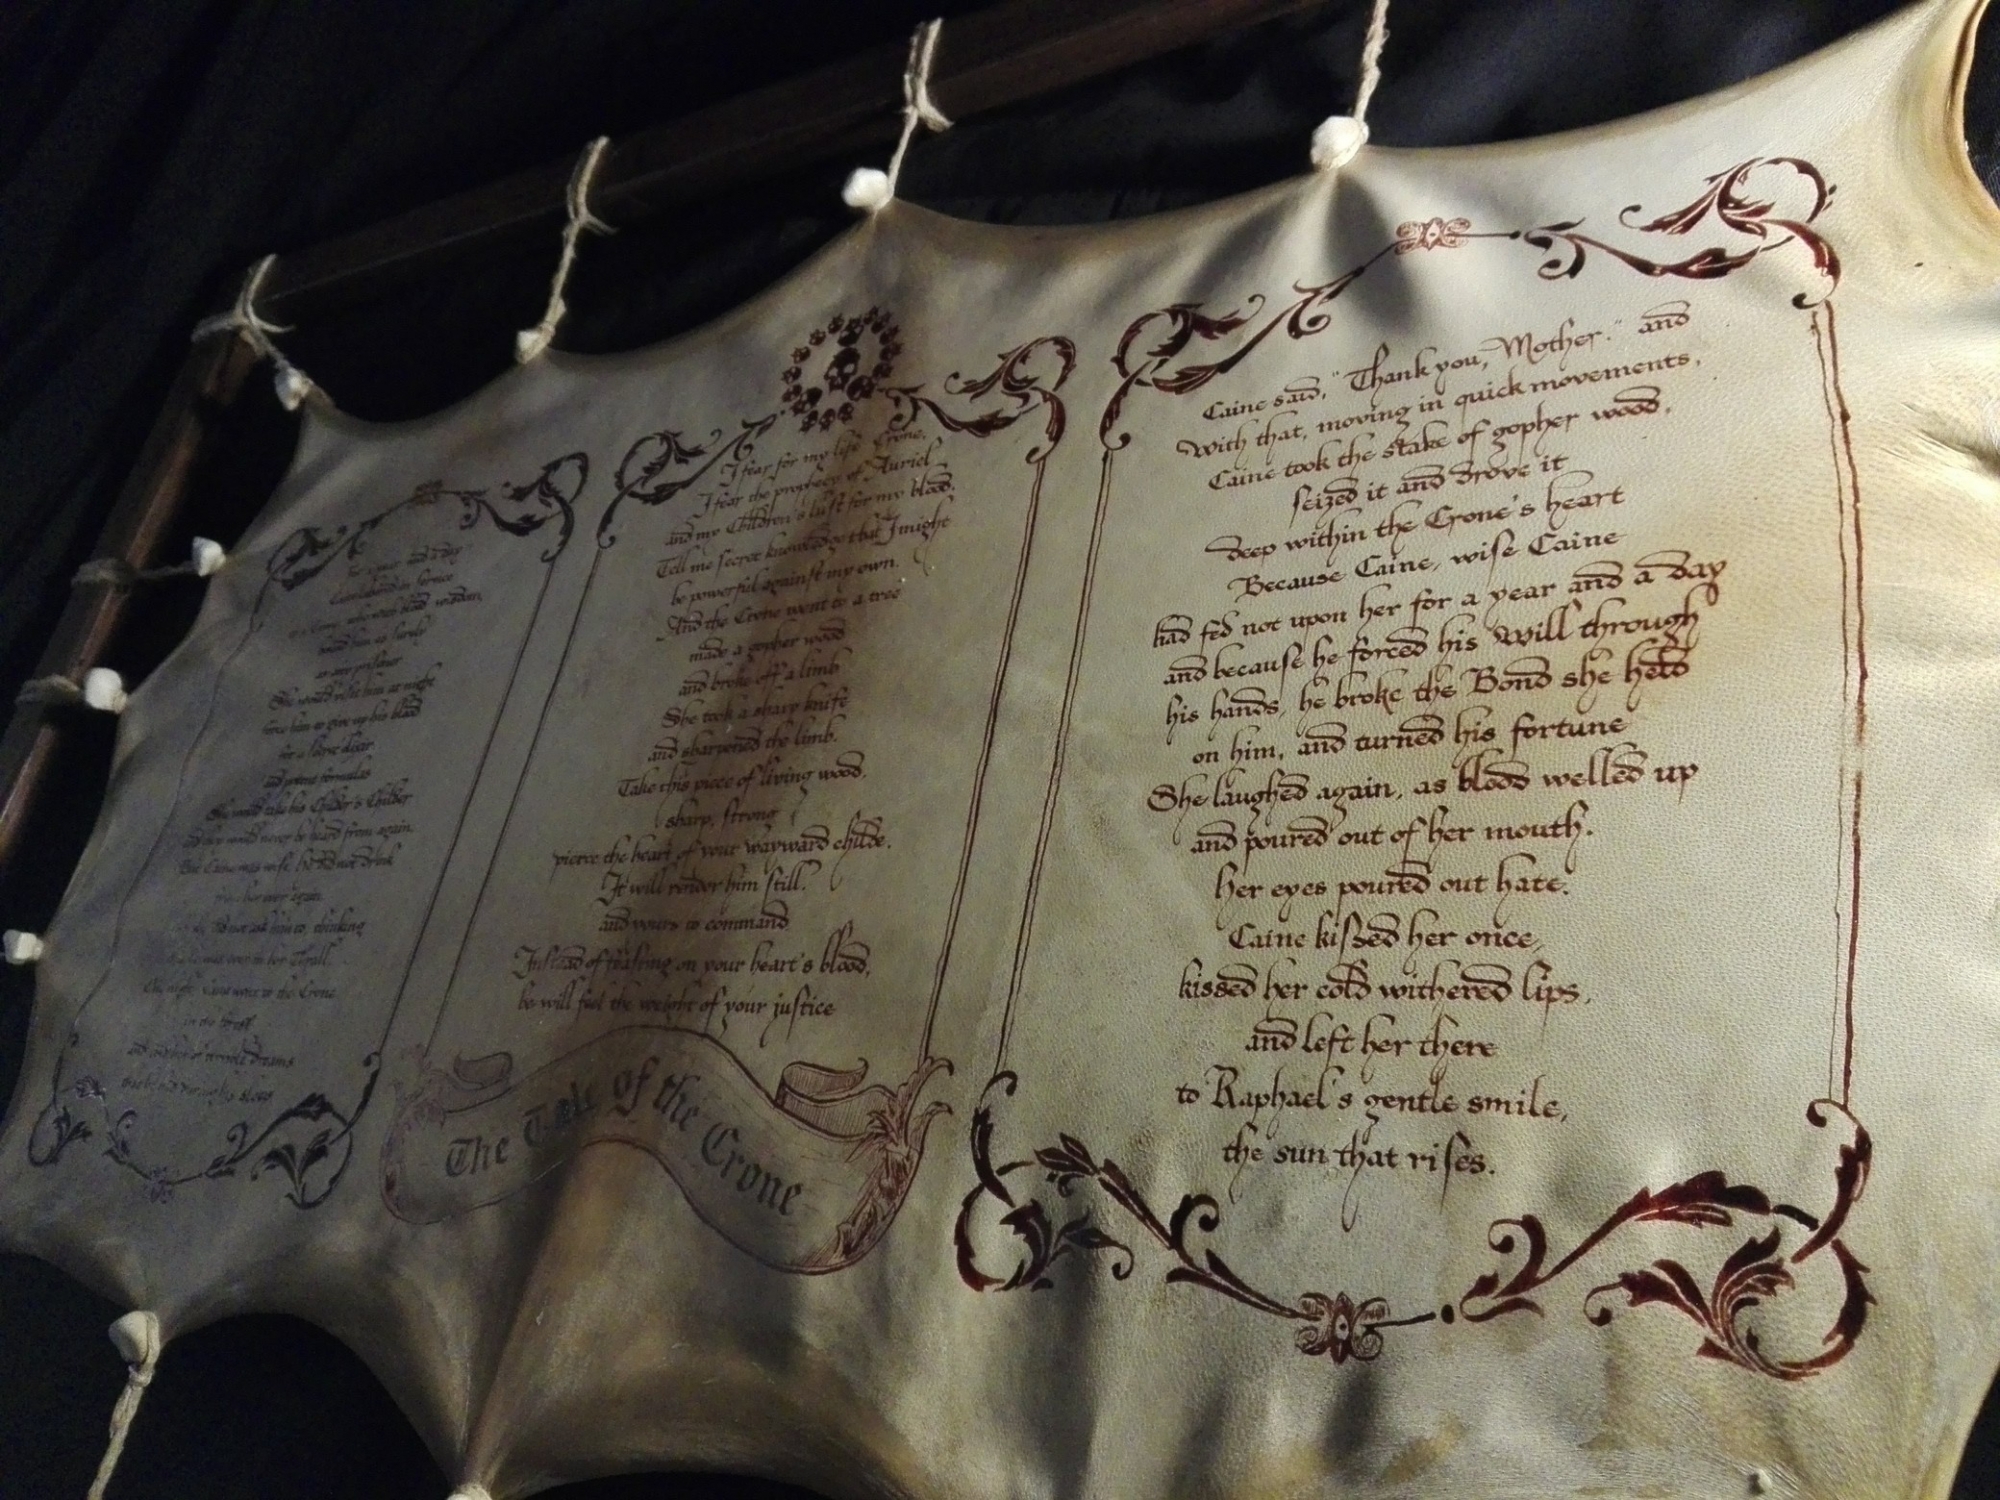 blood wisdom,
bound him as surely
as any prisoner
She would visit him at night
force him to give up his blood
for a secret elixir
and prime formulas
She would take his Childer's Childer
and they would never be heard from again.
But Caine was wise, he did not drink
from her ever again.
did not ask him to, thinking
he was ever in her Thrall.
One night Caine went to the Crone
in the forest
and told her of terrible dreams
I fear for my life Crone,
I fear the prophecy of Auriel
and my Children's lust for my blood.
Tell me secret knowledge that I might
be powerful against my own.
And the Crone went to a tree
made a gopher wood
and broke off a limb
She took a sharp knife
and sharpened the limb.
Take this piece of living wood,
sharp, strong
pierce the heart of your wayward childe.
It will render him still.
and yours to command.
Instead of feasting on your heart's blood,
he will feel the weight of your justice
The Tale of the Crone
Caine said, "Thank you, Mother." and
with that, moving in quick movements,
Caine took the stake of gopher wood,
seized it and drove it
deep within the Crone's heart
Because Caine, wise Caine
had fed not upon her for a year and a day
and because he forced his Will through
his hands, he broke the Bond she held
on him, and turned his fortune
She laughed again, as blood welled up
and poured out of her mouth.
her eyes poured out hate.
Caine kissed her once,
kissed her cold withered lips,
and left her there
to Raphael's gentle smile,
the sun that rises.